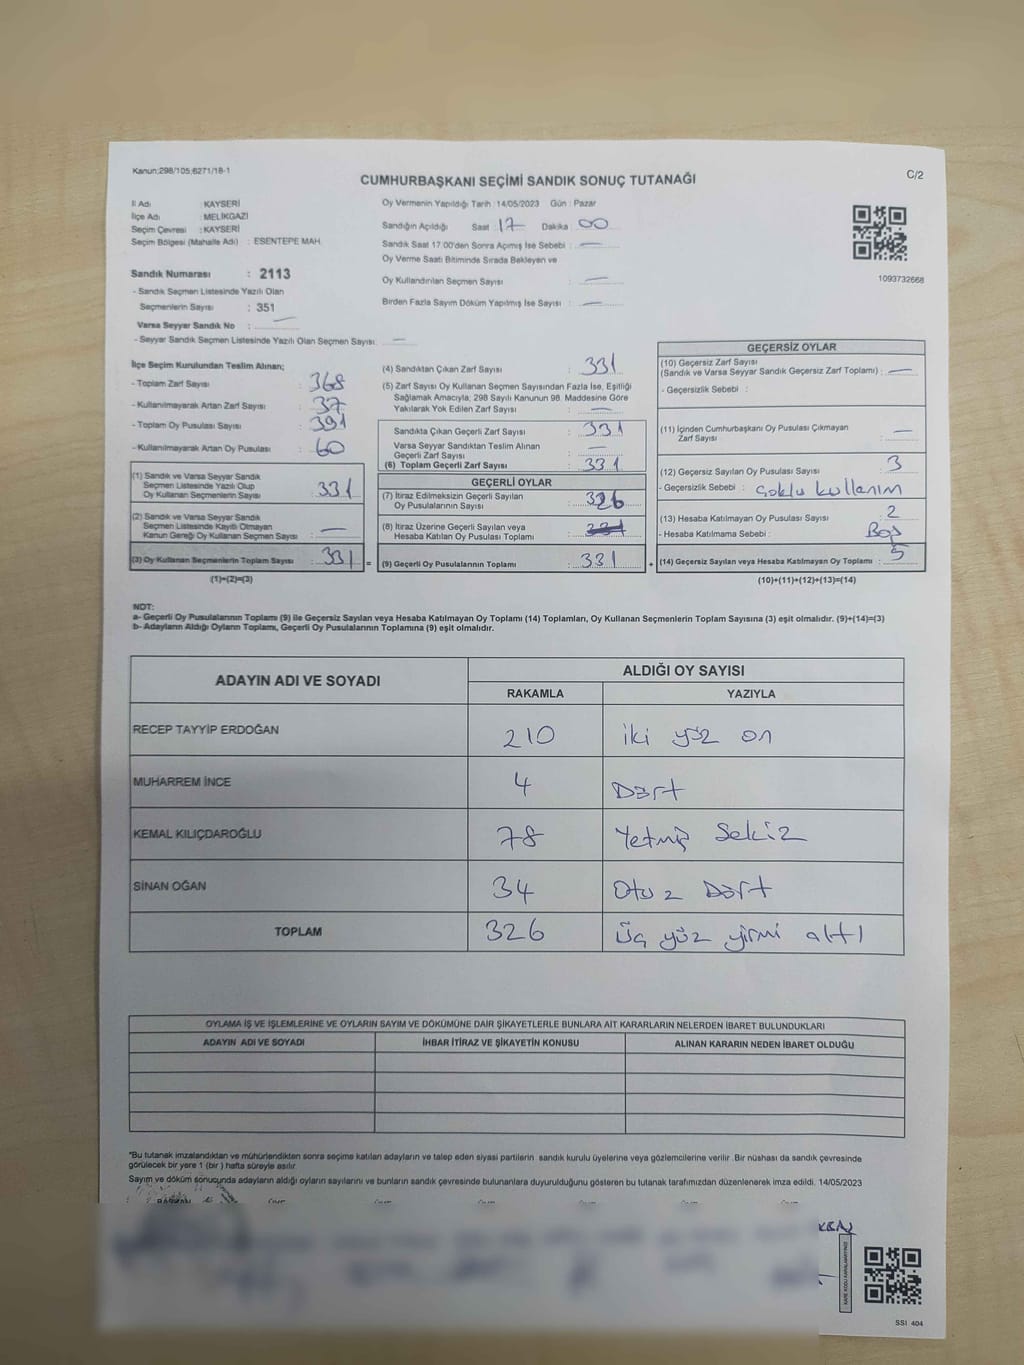 Kanun;298/105;6271/18-1
C/2
CUMHURBAŞKANI SEÇİMİ SANDIK SONUÇ TUTANAĞI
İl Adı : KAYSERİ
İlçe Adı : MELİKGAZİ
Seçim Çevresi : KAYSERİ
Seçim Bölgesi (Mahalle Adı) : ESENTEPE MAH.
Sandık Numarası : 2113
- Sandık Seçmen Listesinde Yazılı Olan
Seçmenlerin Sayısı : 351
Varsa Seyyar Sandık No : —
- Seyyar Sandık Seçmen Listesinde Yazılı Olan Seçmen Sayısı: —
Oy Vermenin Yapıldığı Tarih : 14/05/2023 Gün : Pazar
Sandığın Açıldığı Saat : 17 Dakika : 00
Sandık Saat 17:00'den Sonra Açımış İse Sebebi : —
Oy Verme Saati Bitiminde Sırada Bekleyen ve
Oy Kullandırılan Seçmen Sayısı : —
Birden Fazla Sayım Döküm Yapılmış İse Sayısı : —
1093732668
İlçe Seçim Kurulundan Teslim Alınan;
- Toplam Zarf Sayısı : 368
- Kullanılmayarak Artan Zarf Sayısı : 37
- Toplam Oy Pusulası Sayısı : 391
- Kullanılmayarak Artan Oy Pusulası : 60
(1) Sandık ve Varsa Seyyar Sandık
Seçmen Listesinde Yazılı Olup
Oy Kullanan Seçmenlerin Sayısı : 331
(2) Sandık ve Varsa Seyyar Sandık
Seçmen Listesinde Kayıtlı Olmayan
Kanun Gereği Oy Kullanan Seçmen Sayısı : —
(3) Oy Kullanan Seçmenlerin Toplam Sayısı : 331 =
(1)+(2)=(3)
(4) Sandıktan Çıkan Zarf Sayısı : 331
(5) Zarf Sayısı Oy Kullanan Seçmen Sayısından Fazla İse, Eşitliği
Sağlamak Amacıyla; 298 Sayılı Kanunun 98. Maddesine Göre
Yakılarak Yok Edilen Zarf Sayısı : —
Sandıkta Çıkan Geçerli Zarf Sayısı : 331
Varsa Seyyar Sandıktan Teslim Alınan
Geçerli Zarf Sayısı : —
(6) Toplam Geçerli Zarf Sayısı : 331
GEÇERLİ OYLAR
(7) İtiraz Edilmeksizin Geçerli Sayılan
Oy Pusulalarının Sayısı : 326
(8) İtiraz Üzerine Geçerli Sayılan veya
Hesaba Katılan Oy Pusulası Toplamı : 331
(9) Geçerli Oy Pusulalarının Toplamı : 331 +
GEÇERSİZ OYLAR
(10) Geçersiz Zarf Sayısı
(Sandık ve Varsa Seyyar Sandık Geçersiz Zarf Toplamı) : —
- Geçersizlik Sebebi :
(11) İçinden Cumhurbaşkanı Oy Pusulası Çıkmayan
Zarf Sayısı : —
(12) Geçersiz Sayılan Oy Pusulası Sayısı : 3
- Geçersizlik Sebebi : Çoklu kullanım
(13) Hesaba Katılmayan Oy Pusulası Sayısı : 2
- Hesaba Katılmama Sebebi : Boş
(14) Geçersiz Sayılan veya Hesaba Katılmayan Oy Toplamı : 5
(10)+(11)+(12)+(13)=(14)
NOT:
a- Geçerli Oy Pusulalarının Toplamı (9) ile Geçersiz Sayılan veya Hesaba Katılmayan Oy Toplamı (14) Toplamları, Oy Kullanan Seçmenlerin Toplam Sayısına (3) eşit olmalıdır. (9)+(14)=(3)
b- Adayların Aldığı Oyların Toplamı, Geçerli Oy Pusulalarının Toplamına (9) eşit olmalıdır.
ADAYIN ADI VE SOYADI ALDIĞI OY SAYISI
RAKAMLA YAZIYLA
RECEP TAYYİP ERDOĞAN 210 iki yüz on
MUHARREM İNCE 4 Dört
KEMAL KILIÇDAROĞLU 78 Yetmiş Sekiz
SİNAN OĞAN 34 Otuz Dört
TOPLAM 326 Üç yüz yirmi altı
OYLAMA İŞ VE İŞLEMLERİNE VE OYLARIN SAYIM VE DÖKÜMÜNE DAİR ŞİKAYETLERLE BUNLARA AİT KARARLARIN NELERDEN İBARET BULUNDUKLARI
ADAYIN ADI VE SOYADI İHBAR İTİRAZ VE ŞİKAYETİN KONUSU ALINAN KARARIN NEDEN İBARET OLDUĞU
*Bu tutanak imzalandıktan ve mühürlendikten sonra seçime katılan adayların ve talep eden siyasi partilerin sandık kurulu üyelerine veya gözlemcilerine verilir .Bir nüshası da sandık çevresinde
görülecek bir yere 1 (bir ) hafta süreyle asılır.
Sayım ve döküm sonucunda adayların aldığı oyların sayılarını ve bunların sandık çevresinde bulunanlara duyurulduğunu gösteren bu tutanak tarafımızdan düzenlenerek imza edildi. 14/05/2023
BAŞKAN
SSI 404